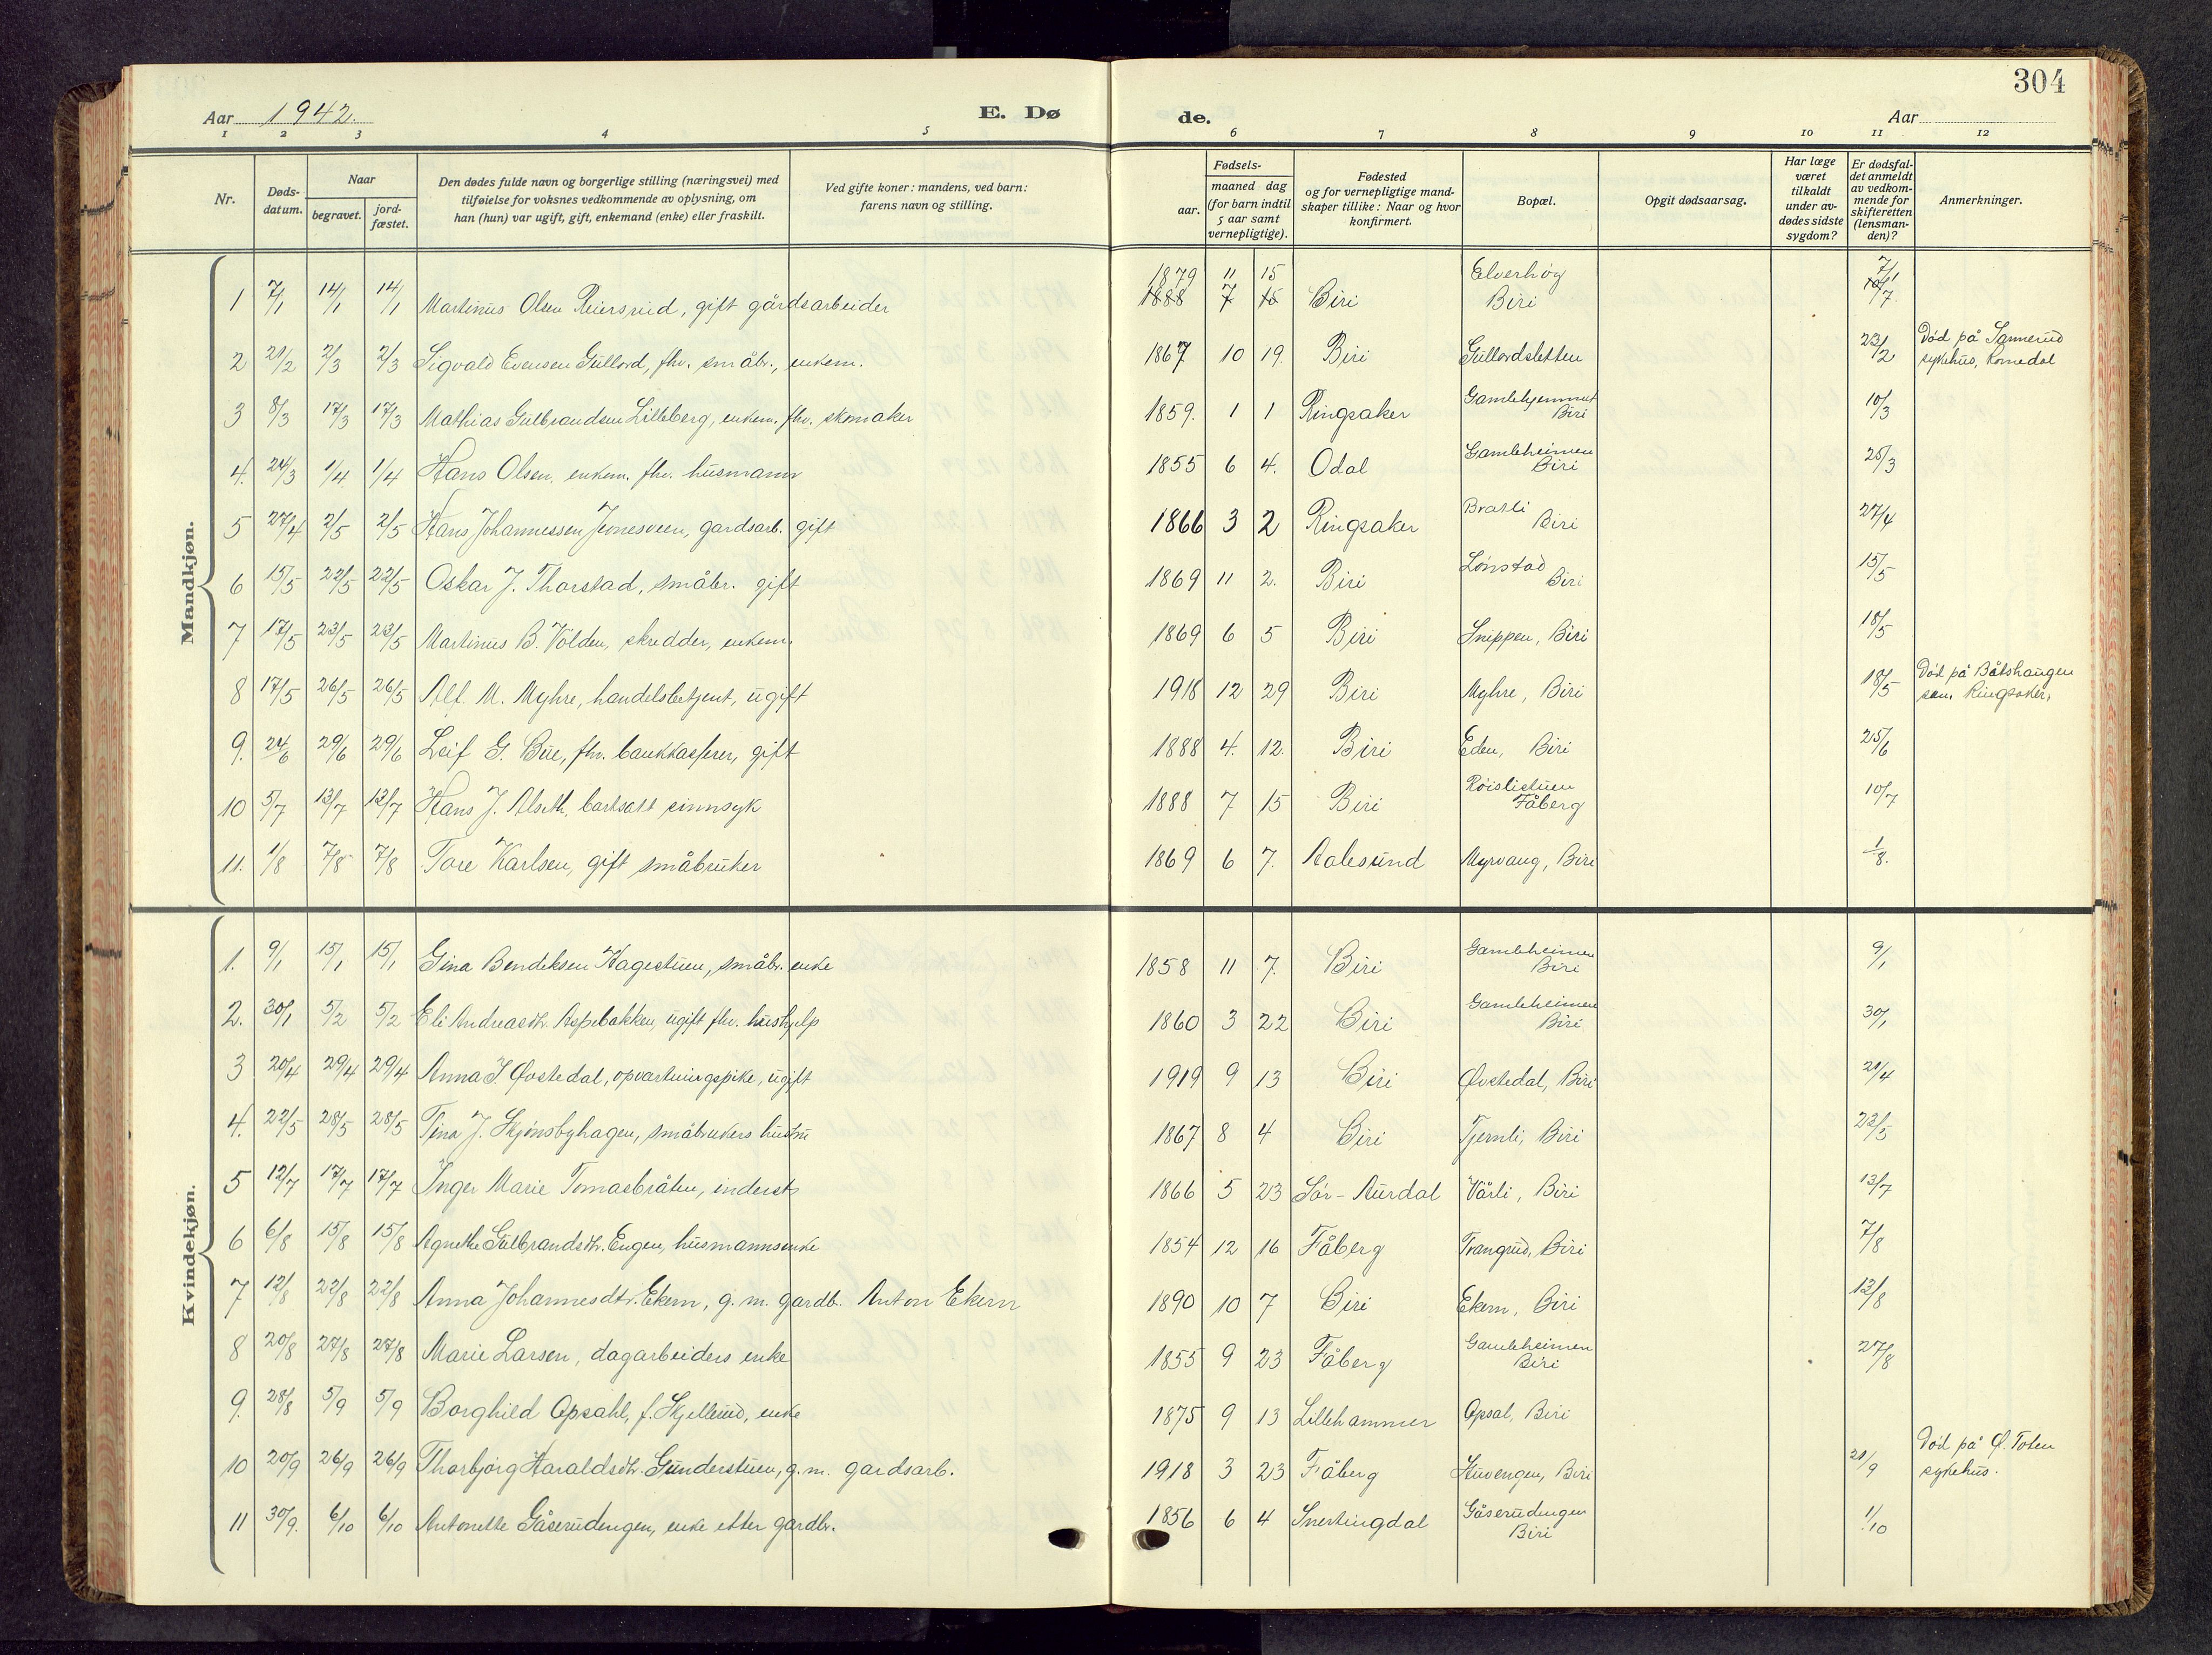 304
Aar 1942. E. Dø de. Aar
1 2 3 4 5 6 7 8 9 10 11 12
Nr. Døds-datum. Naar begravet. jord-fæstet. Den dødes fulde navn og borgerlige stilling (næringsvei) med tilføielse for voksnes vedkommende av oplysning, om han (hun) var ugift, gift, enkemand (enke) eller fraskilt. Ved gifte koner: mandens, ved barn: farens navn og stilling. Fødsels- aar. maaned dag (for barn indtil 5 aar samt vernepligtige). Fødested og for vernepligtige mand-skaper tillike: Naar og hvor konfirmert. Bopæl. Opgit dødsaarsag. Har læge været tilkaldt under av-dødes sidste sygdom? Er dødsfal-det anmeldt av vedkom-mende for skifteretten (lensman-den)? Anmerkninger.
Mandkjøn.
1 7/1 14/1 14/1 Martinus Olsen Reiersrud, gift gårdsarbeider 1879 11 15 1888 7 15 Biri Elverhøg Biri 7/1 10/7
2 21/2 2/3 2/3 Sigvald Evensen Gullord, fhv. småbr., enkem. 1867 10 19. Biri Gullordsletten 23/2 Død på Sannerud sykehus, Romedal
3 8/3 17/3 17/3 Mathias Gulbrandsen Lilleberg, enkem. fhv. skomaker 1859. 1 1 Ringsaker Gamlehjemmet Biri 10/3
4. 24/3 1/4 1/4 Hans Olsen, enkem. fhv. husmann 1855 6 4. Odal Gamleheimen Biri 25/3
5 27/4 2/5 2/5 Hans Johannessen Jevnesveen, gardsarb. gift 1866 3 2 Ringsaker Brasli Biri 27/4
6 15/5 22/5 22/5 Oskar J. Thorstad, småbr. gift 1869 11 2. Biri Lønstad Biri 15/5
7 17/5 23/5 23/5 Martinus B. Volden, skredder, enkem. 1869 6 5 Biri Snippen, Biri 18/5
8 17/5 26/5 26/5 Alf. M. Myhre, handelsbetjent, ugift 1918 12 29 Biri Myhre, Biri 18/5 Død på Båtshaugen san. Ringsaker,
9. 24/6 29/6 29/6 Leif G. Bue, fhv. bankkasserer, gift 1888 4. 12. Biri Eden, Biri 25/6
10 5/7 13/7 13/7 Hans J. Alseth, bortsatt sinnsyk 1888 7 15 Biri Røislistuen Fåberg 10/7
11. 1/8 7/8 7/8 Tore Karlsen, gift småbruker 1869 6 7. Aalesund Myrvang, Biri 1/8.
Kvindekjøn.
1. 9/1 15/1 15/1 Gina Bendiksen Hagestuen, småbr. enke 1858 11 7. Biri Gamleheimen Biri 9/1
2. 30/1 5/2 5/2 Eli Andreasdtr. Aspebakken, ugift fhv. hushjelp 1860 3 22 Biri Gamleheimen Biri 30/1
3 20/4 29/4 29/4 Anna J. Øvstedal, opvartningspike, ugift 1919 9 13 Biri Øvstedal, Biri 21/4
4. 22/5 28/5 28/5 Tina J. Skjønsbyhagen, småbrukers hustru 1867 8 4 Biri Tjernli, Biri 23/5
5 12/7 17/7 17/7 Inger Marie Tomasbråten, inderst 1866 5 23 Sør-Aurdal Vårli, Biri 13/7
6 6/8 15/8 15/8 Agnethe Gulbrandsdtr. Engen, husmannsenke 1854 12 16 Fåberg Trangrud, Biri 7/8
7 12/8 22/8 22/8 Anna Johannesdtr. Ekern, g. m. gardb. Anton Ekern 1890 10 7 Biri Ekern, Biri 13/8
8 20/8 27/8 27/8 Marie Larsen, dagarbeiders enke 1855 9 23 Fåberg Gamleheimen Biri 27/8
9. 28/8 5/9 5/9 Borghild Opsahl, f. Skjellerud, enke 1875 9 13 Lillehammer Opsal, Biri
10 20/9 26/9 26/9 Thorbjørg Haraldsdtr. Gunderstuen, g. m. gardsarb. 1918 3 23 Fåberg Huvengen, Biri 21/9 Død på Ø. Toten sykehus.
11 30/9. 6/10 6/10 Antonette Gåserudengen, enke etter gardbr. 1856 6 4 Snertingdal Gåserudengen Biri 1/10